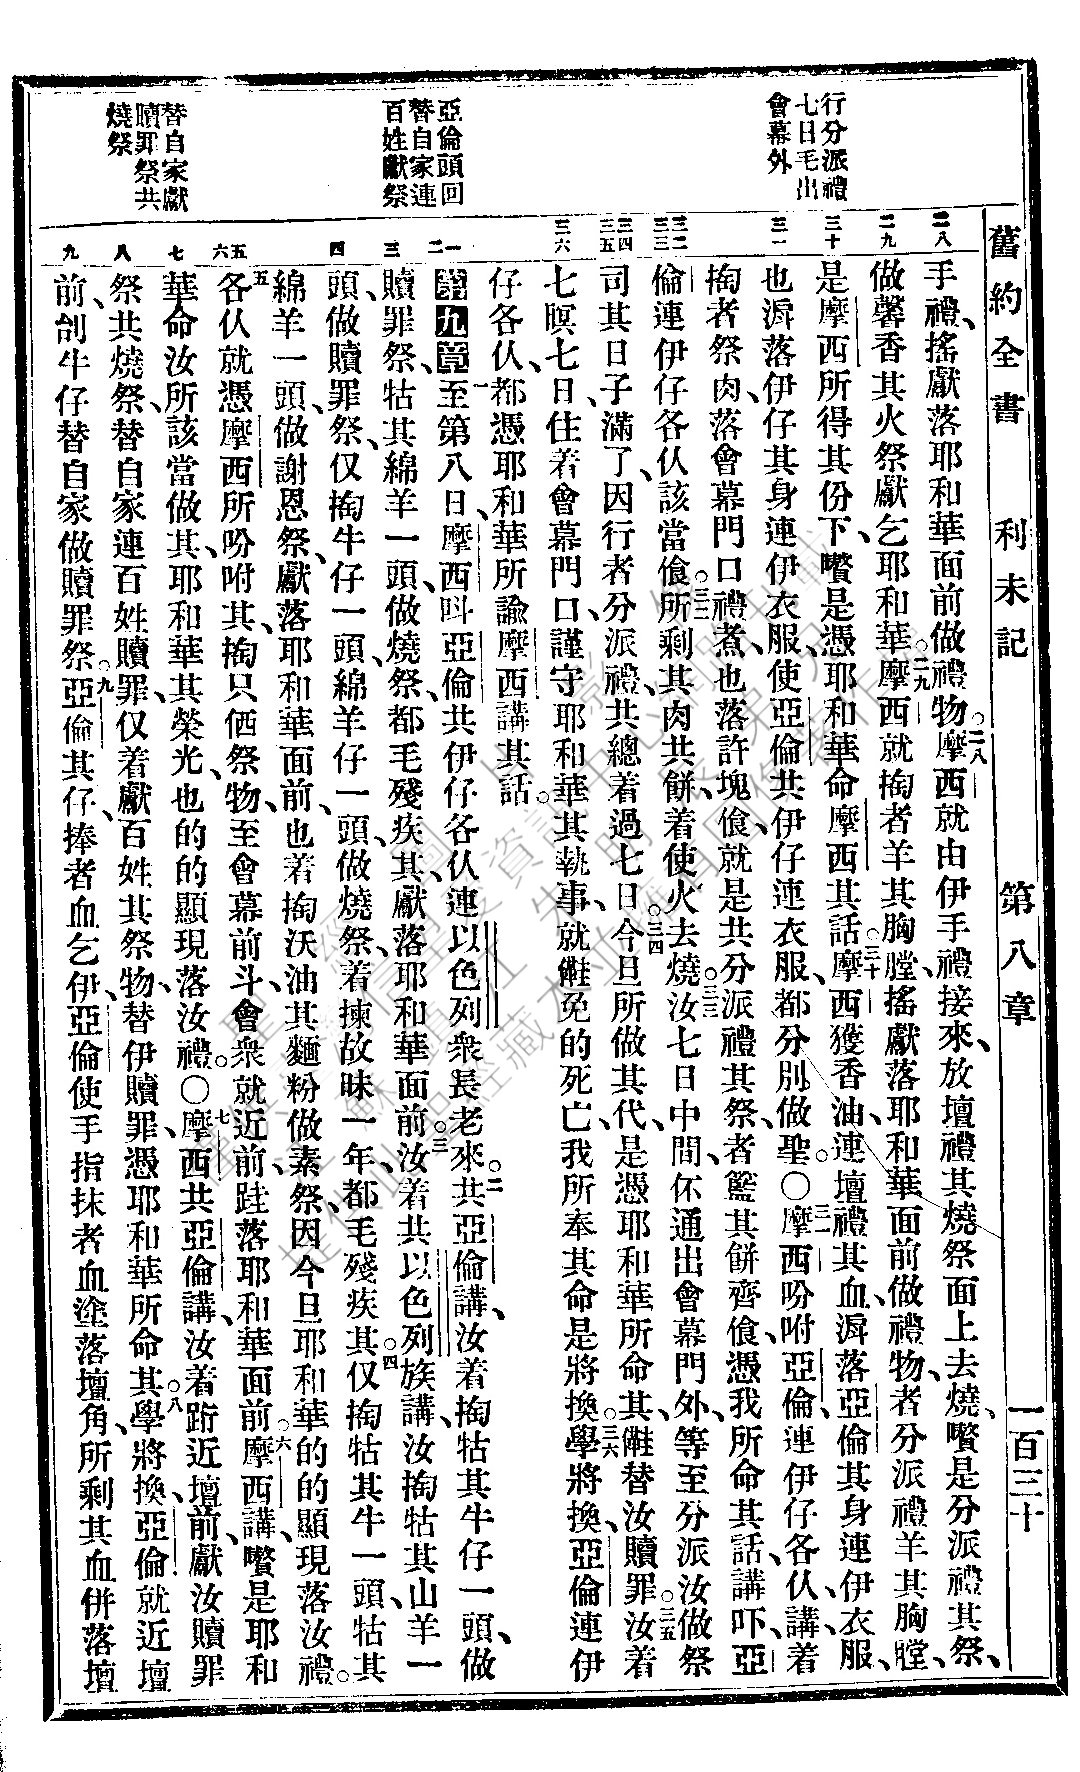 舊約全書 利未記 第八章 一百三十
行分派禮
七日毛出
會幕外
亞倫頭回
替自家連
百姓獻祭
替自家獻
贖罪祭共
燒祭
二八 二九 三十 三一 三二 三三 三四 三五 三六 一 二 三 四 五 六 七 八 九
手禮、搖獻落耶和華面前做禮物。二八摩西就由伊手禮接來、放壇禮其燒祭面上去燒、嚽是分派禮其祭、
做馨香其火祭獻乞耶和華。二九摩西就掏者羊其胸膛、搖獻落耶和華面前做禮物、者分派禮羊其胸膛、
是摩西所得其份下、嚽是憑耶和華命摩西其話。三十摩西獲香油連壇禮其血、漘落亞倫其身連伊衣服、
也漘落伊仔其身連伊衣服、使亞倫共伊仔連衣服、都分別做聖。〇三一摩西吩咐亞倫連伊仔各仈講、着
掏者祭肉、落會幕門口禮煮、也落許塊飡、就是共分派禮其祭者籃其餅齊飡、憑我所命其話、講吓、亞
倫連伊仔各仈該當飡。三二所剩其肉共餅、着使火去燒。三三汝七日中間伓通出會幕門外、等至分派汝做祭
司其日子滿了、因行者分派禮、共總着過七日。三四今旦所做其代、是憑耶和華所命其、𠆧替汝贖罪。三五汝着
七暝七日住着會幕門口、謹守耶和華其執事、就𠆧免的死亡、我所奉其命是將換。三六學將換、亞倫連伊
仔各仈、都憑耶和華所諭摩西講其話。
第九章 一至第八日、摩西呌亞倫共伊仔各仈連以色列衆長老來。二共亞倫講、汝着掏牯其牛仔一頭、做
贖罪祭、牯其綿羊一頭、做燒祭、都毛殘疾其、獻落耶和華面前。三汝着共以色列族講、汝掏牯其山羊一
頭、做贖罪祭、仅掏牛仔一頭、綿羊仔一頭、做燒祭、着揀故昧一年、都毛殘疾其。四仅掏牯其牛一頭、牯其
綿羊一頭、做謝恩祭、獻落耶和華面前、也着掏沃油其麵粉做素祭、因今旦耶和華的的顯現落汝禮。
五各仈就憑摩西所吩咐其、掏只儕祭物、至會幕前斗、會衆就近前、跬落耶和華面前。六摩西講、嚽是耶和
華命汝所該當做其、耶和華其榮光、也的的顯現落汝禮。〇七摩西共亞倫講、汝着跡近壇前、獻汝贖罪
祭、共燒祭、替自家連百姓贖罪、仅着獻百姓其祭物、替伊贖罪、憑耶和華所命其。八學將換、亞倫就近壇
前、刣牛仔替自家做贖罪祭。九亞倫其仔、捧者血乞伊、亞倫使手指抹者血、塗落壇角、所剩其血併落壇